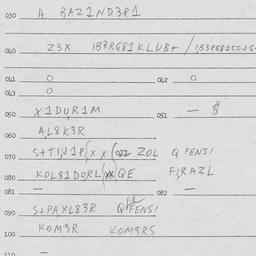 030 A BAZ1ND3R1
040 Z3X 1B3RG81KLUB+ / 1B3RG81COJG
041 0 042 0
043 0
050 X1DU,R1M 051 — 8
060 A,L8K3R
070 S+T1,J1P { X X {022 ZOL Q FENS1
080 KOL81DO,RL {XX QE F1,RAZL
081 — 082 —
090 S+PAXL83R Q FENS1
100 KOM3R KOM3RS
110 —